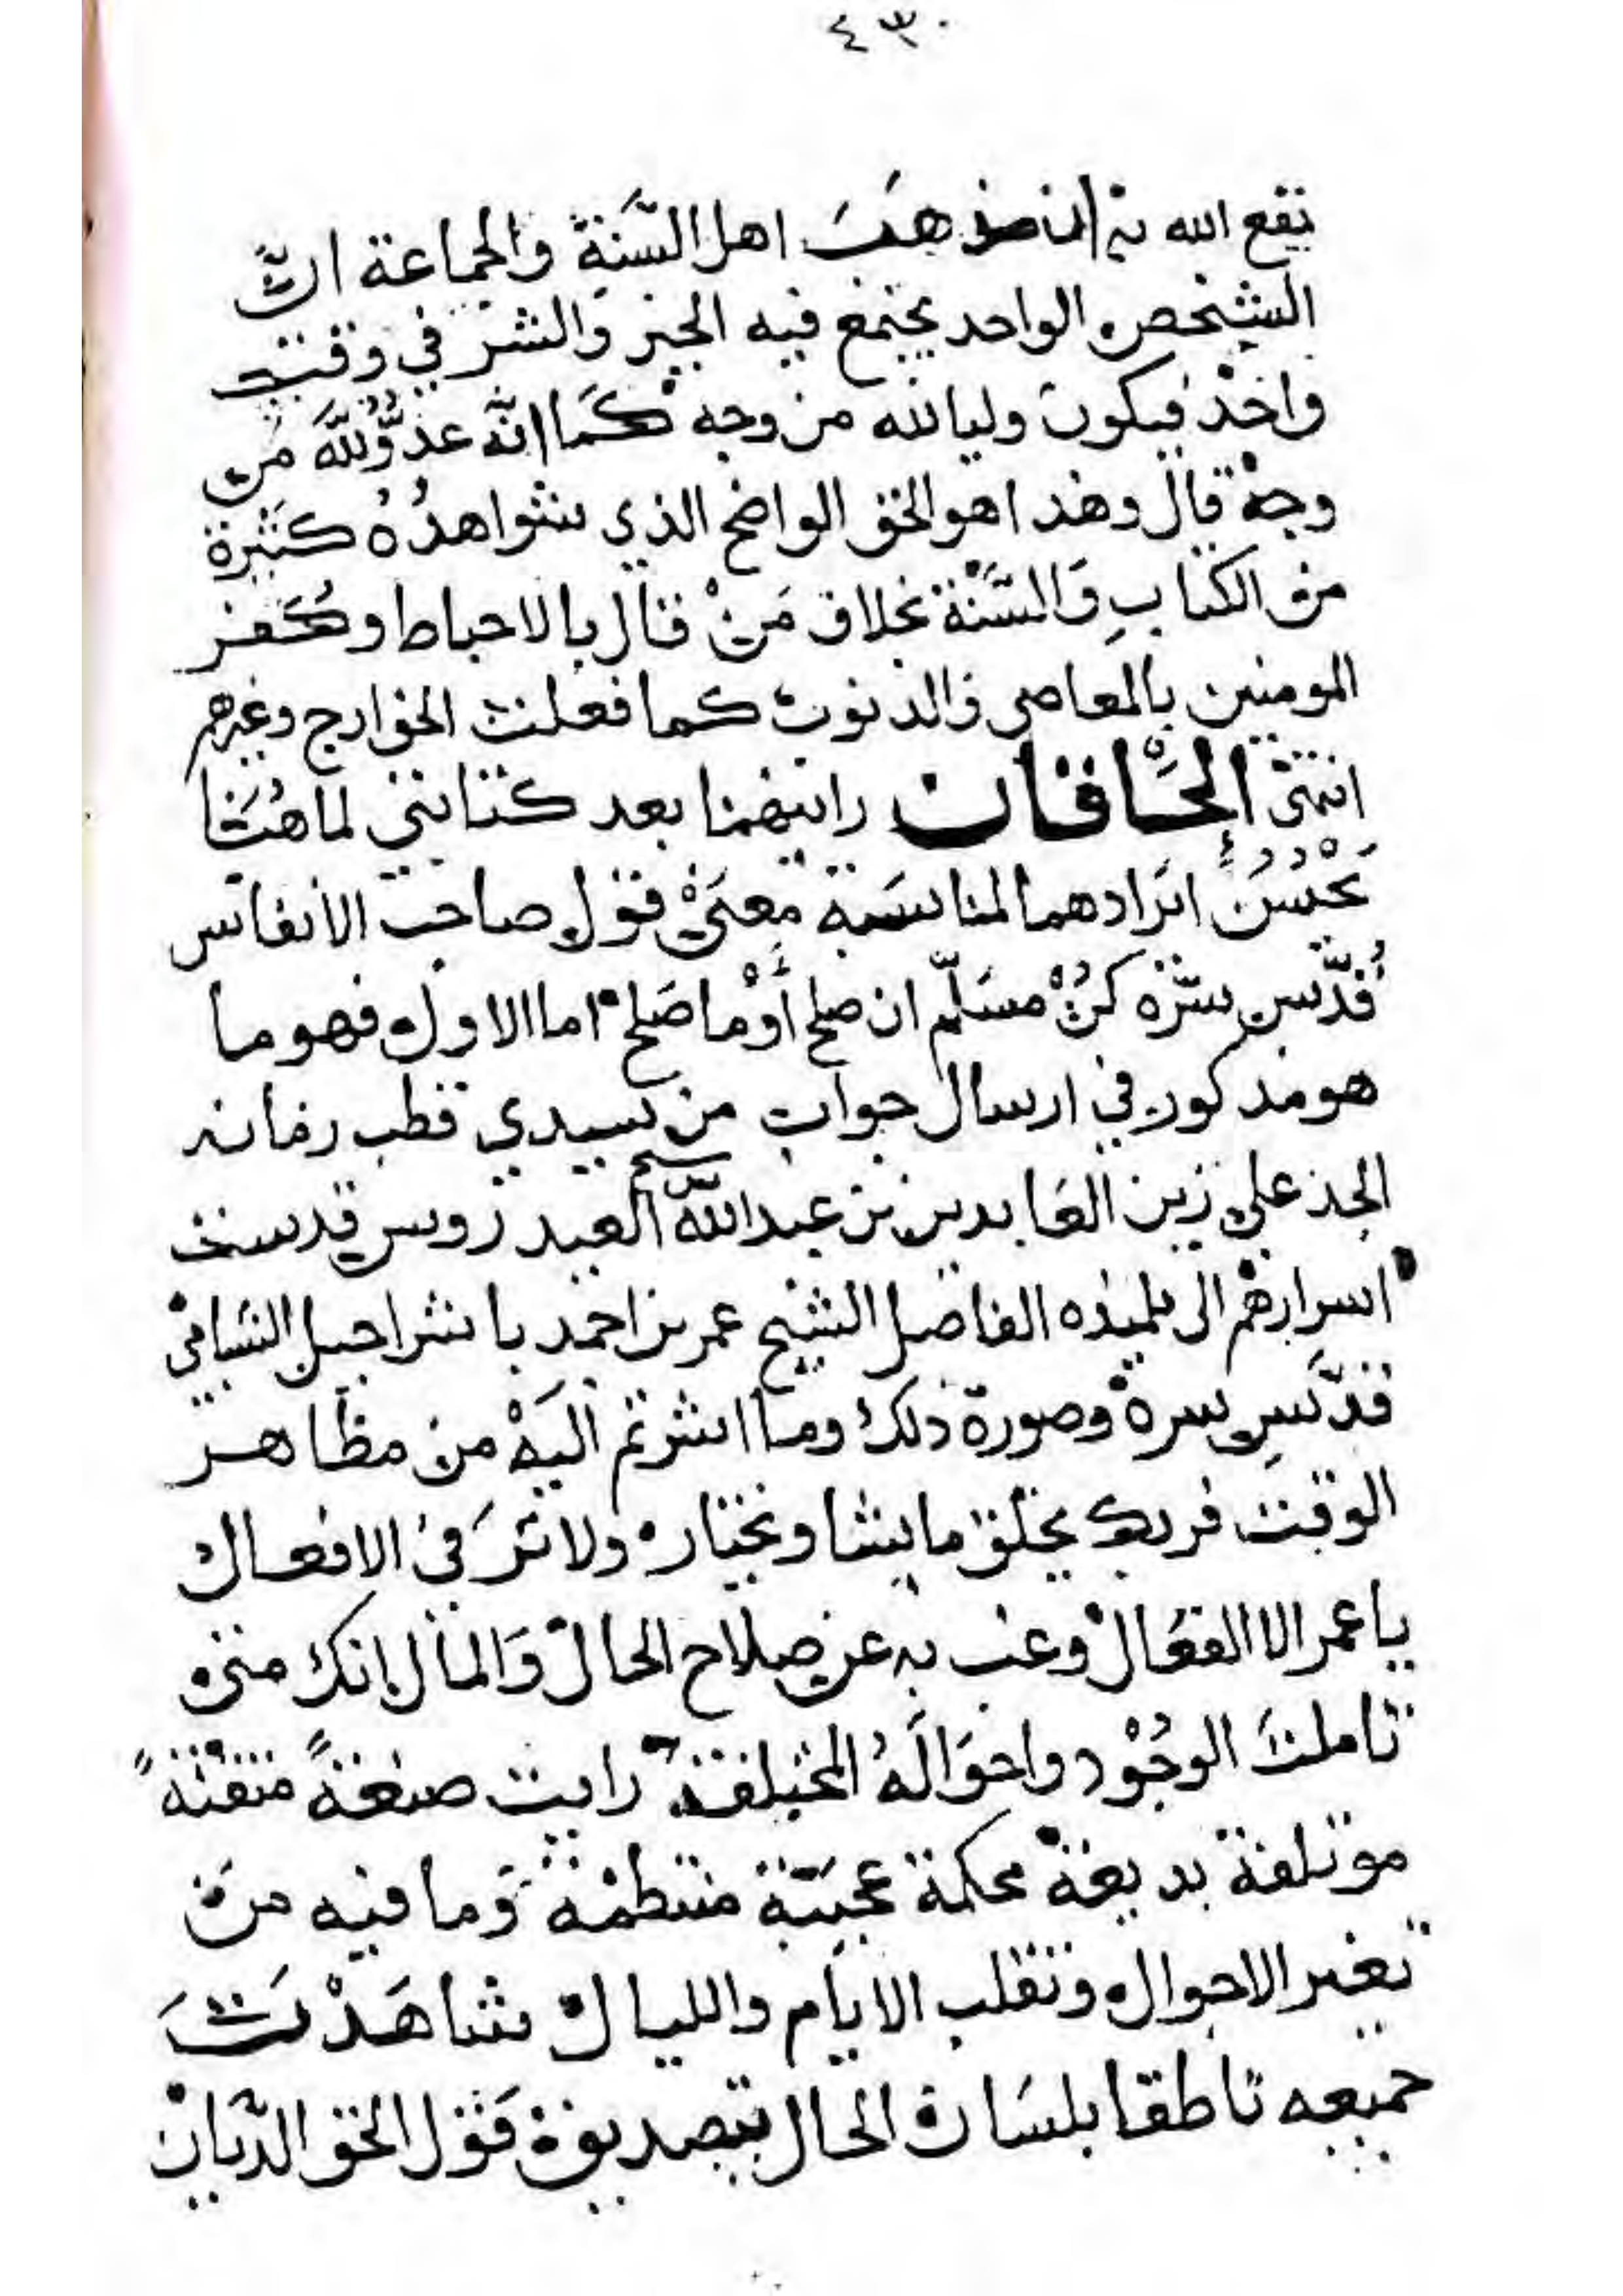 ٤٣٠
نفع الله به ان مذهب اهل السَّنة والجماعة انّ
الشخص الواحد يجتمع فيه الخير والشر في وقت
واحد فيكون وليا لله من وجه كَما انّه عدُوٌّ للّه من
وجه قال وهذا هو الحق الواضح الذي شواهدُهُ كثيرة
من الكتابِ وَالسُّنَّة بخلاف مَنْ قال بالاحباط وكفر
المومنين بالمعاصي والذنوب كما فعلت الخوارج وغيرهم
انتهى الحاقان رايتهما بعد كتابتي لما هُنَا
يَحْسُنُ ايرادهما لمناسَبة معنى قول صاحب الانفاس
قُدّس سرّه كُنْ مسَلّم ان صلح أوْ ما صَلح اما الاول فهو ما
هو مذكور في ارسال جواب من سيدي قطب زمانه
الجد علي زين العَابدين بن عبد اللّه العيدروس قدست
اسرارهم الى تلميذه الفاضل الشيخ عمر بن احمد باشراحيل الشبامي
قدّسِ سره وصورة ذلك وما اشرتم اليَهْ من مظاهر
الوقت فربك يخلق ما يشا ويختار ولا تَرَ في الافعال
يا عمر الا الفعَال وغب به عن صلاح الحال وَالمال انك متى
تاملتَ الوجُوْد واحوَالَهُ المختلفة رايت صنعةً متقنةً
موتلفة بديعة محكمة عجيبَة منتظمة وَما فيه من
تغير الاحوال وتقلب الايام والليال شاهَدْتَ
جميعه ناطقا بلسَان الحال بتصديق قوْل الحق الدّيان